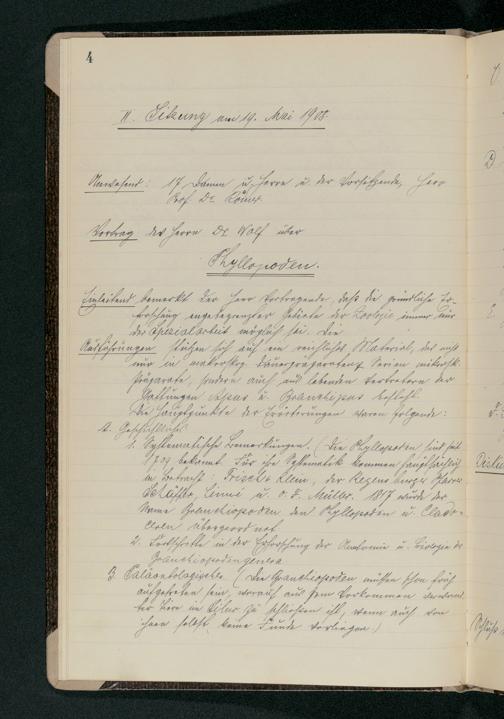 4
II. Sitzung am 19. Mai 1908.
Anwesend: 17 Damen u. Herren u. der Vorsitzende, Herr
Prof. Dr. Römer.
Vortrag des Herrn Dr. Wolf über
Phyllopoden.
Einleitend bemerkt der Herr Vortragende, daß die gründliche Er-
forschung engbegrenzter Gebiete der Zoologie immer nur
der Spezialarbeit möglich sei. Die
Ausführungen stützen sich auf ein reichliches Material, das nicht
nur in makroskop. Dauerpräparaten, Serien mikrosk.
Präparate, sondern auch aus lebenden Vertretern der
Gattungen Apus u. Branchipus besteht.
Die Hauptpunkte der Erörterungen waren folgende:
A. Geschichtliches
1. Systematische Bemerkungen. (Die Phyllopoden sind seit
1709 bekannt. Für ihre Systematik kommen hauptsächlich
in Betracht: Frisch, Klein, der Regensburger Pfarrer
Schäffer, Linné u. O. F. Müller. 1817 wurde der
Name Branchiopoden den Phyllopoden u. Clado-
ceren übergeordnet.
2. Fortschritte in der Erforschung der Anatomie u. Biologie der
Branchiopodengenera
3. Paläontologisches. (Die Branchiopoden müssen schon früh
aufgetreten sein, worauf aus dem Vorkommen verwand-
ter Tiere im Silur zu schließen ist, wenn auch von
ihnen selbst keine Funde vorliegen.)